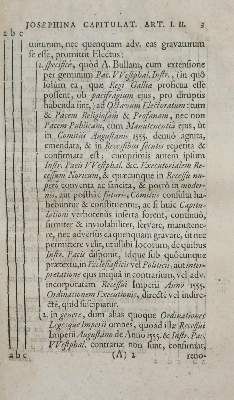 JOSEPHINA CAPITULAT. ART. I. II. 3
a b c
uiturum, nec quenquam adv. eas gravaturum
se esse, promittit Electus:
1. specificè, quòd A. Bullam, cum extensione
per geminum Pac. VVestphal. Instr., (in quô
solum ea, quæ Regi Galliæ profecta esse
possent, ob pacifragium ejus, pro diruptis
habenda sint,) ad Octavum Electoratum: tum
& Pacem Religiosam & Profanam, nec non
Pacem Publicam, cum Manutenentia ejus, ut
in Comitiis Augustanis 1555. denuò agnita,
emendata, & in Recessibus secutis repetita &
confirmata est; cumprimis autem ipsum
Instr. Pacis VVestphal. &c. Executorialem Re-
cessum Noricum, & quæcunque in Recessu nu-
pero conventa ac sancita, & porrò in moder-
nis, aut posthac futuris, Comitiis conclusa ha-
bebuntur & constituentur, ac si huic Capitu-
lationi verbotenus inserta forent, continuò,
firmiter & inviolabiliter, servare, manutene-
re, nec adversus ea quenquam gravare, ut nec
permittere velit,
Instr. Pacis disponit, idque sub quocunque
prætextu, in Ecclesiasticis vel Politicis, aut inter-
pretatione ejus iniquâ in contrarium, vel adv.
incorporatam Recessui Imperii Anno 1555.
Ordinationem Executionis, directè vel indire-
ctè, quid suscipiatur.
2. in genere, dum alias quoque Ordinationes
Legesque Imperii omnes, quoad illæ Recessui
Imperii Augustano de Anno 1555. & Instr. Pac.
VVestphal. contrariæ non sunt, confirmat,
a b c (A) 2 reno-